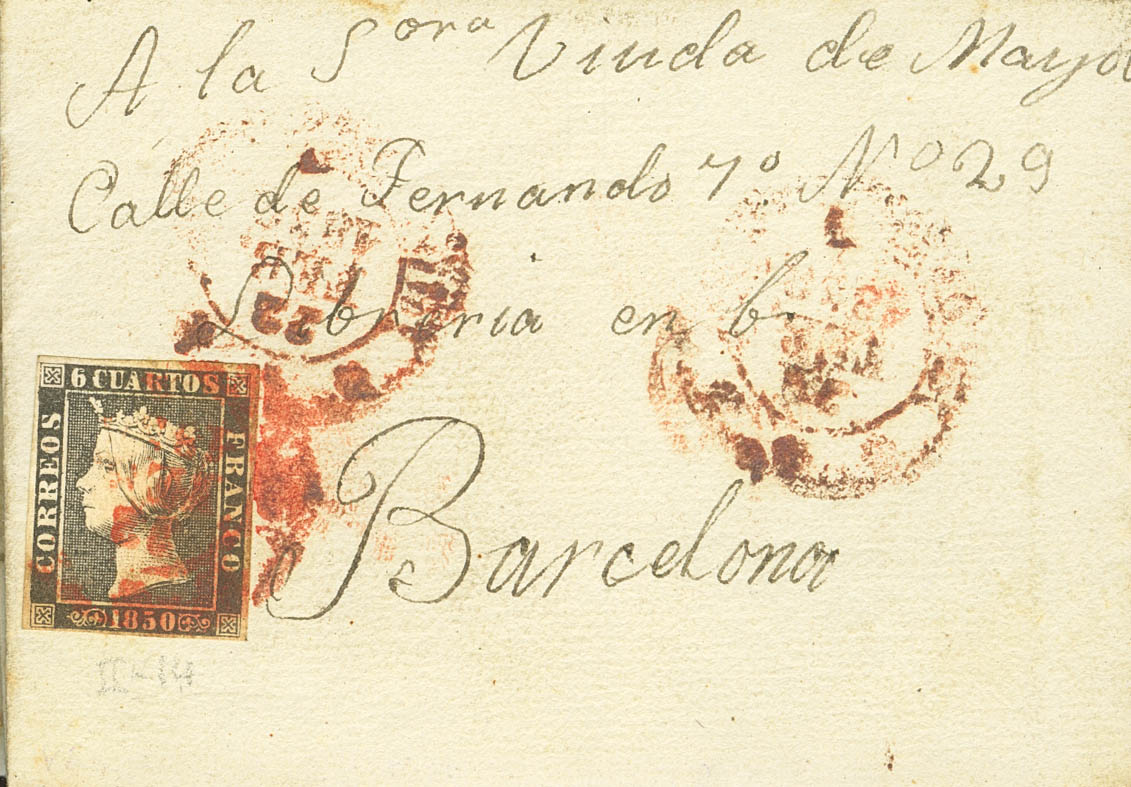 A la Sora Viuda de Mayol
Calle de Fernando 7o No 29
Libreria en b.
Barcelona
6 CUARTOS
CORREOS
FRANCO
1850
22